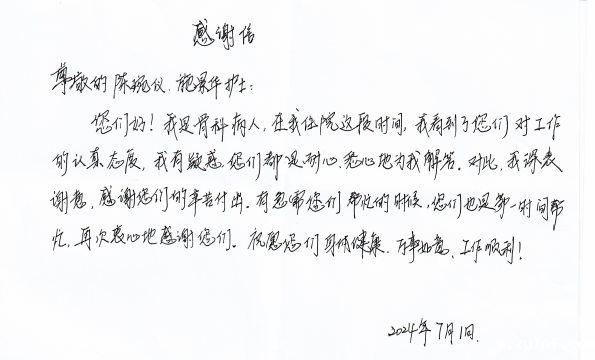 感谢信
尊敬的陈婉仪、施翠华护士：
您们好！我是骨科病人，在我住院这段时间，我看到了您们对工作
的认真态度，我有疑惑，您们都是耐心、悉心地为我解答。对此，我深表
谢意，感谢您们的辛苦付出。有需您们帮忙的时候，您们也是第一时间帮
忙，再次衷心地感谢您们。祝愿您们身体健康、万事如意、工作顺利！
2024年7月1日.